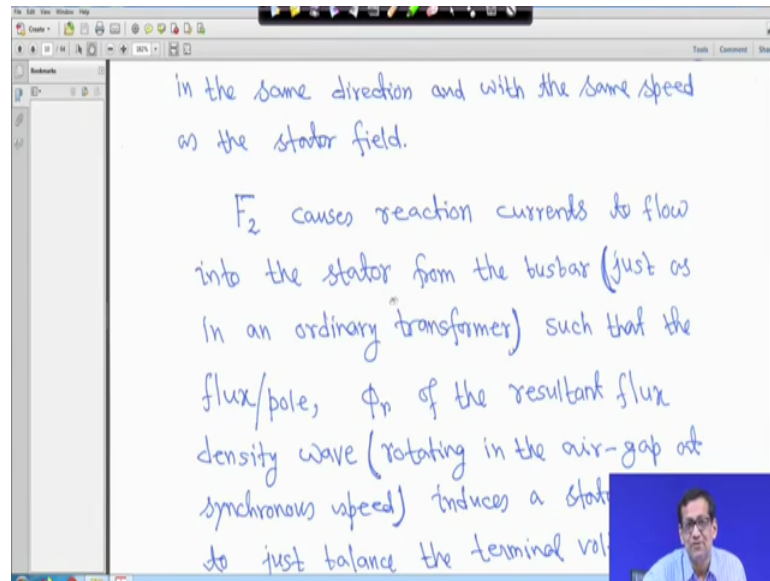 File Edit View Window Help
Create
182%
Tools Comment
Bookmarks
in the same direction and with the same speed
as the stator field.
F2 causes reaction currents to flow
into the stator from the busbar (just as
in an ordinary transformer) such that the
flux/pole, φr of the resultant flux
density wave (rotating in the air-gap at
synchronous speed) induces a
to just balance the terminal